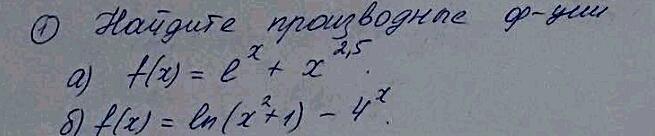 ① Найдите производные ф-ции
а) f(x) = e^x + x^2,5.
б) f(x) = ln(x²+1) - 4^x.